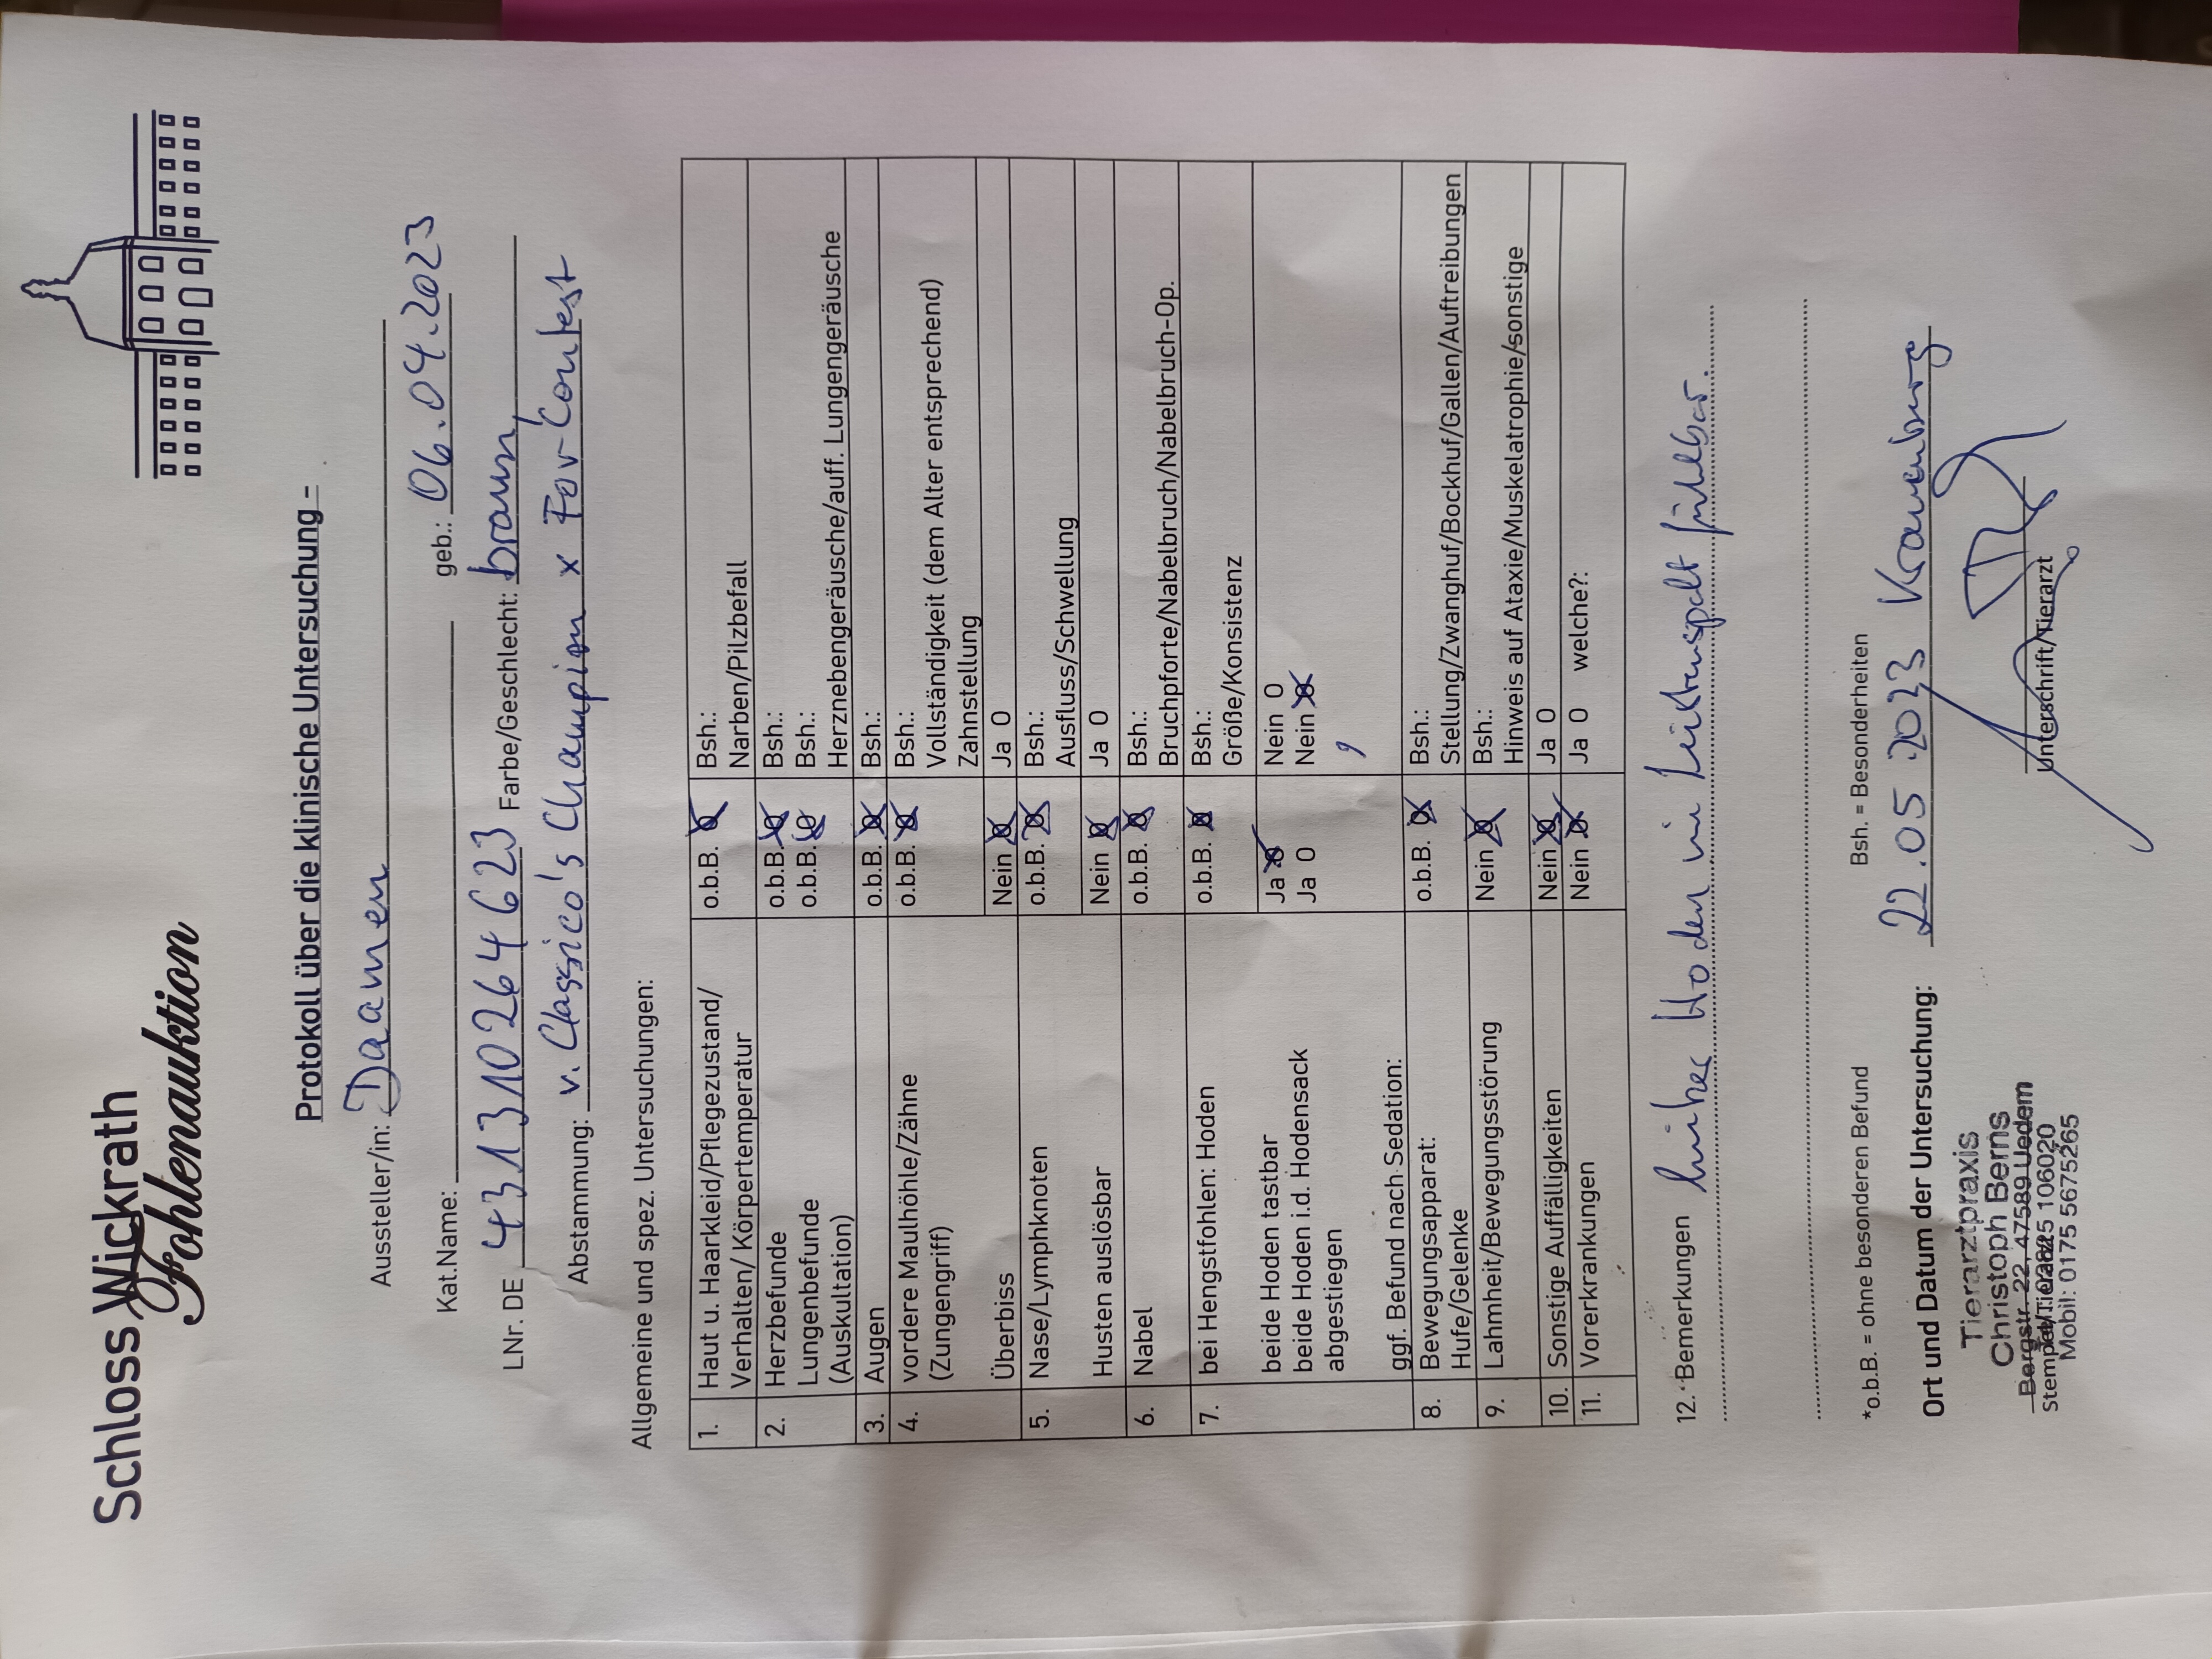 Schloss Wickrath
Fohlenauktion
Protokoll über die klinische Untersuchung -
Aussteller/in: Daamen
Kat.Name: geb.: 06.04.2023
LNr. DE 431310264623 Farbe/Geschlecht: braun,
Abstammung: v. Classico's Champion x For Contest
Allgemeine und spez. Untersuchungen:
1. Haut u. Haarkleid/Pflegezustand/ o.b.B. O Bsh.:
Verhalten/ Körpertemperatur Narben/Pilzbefall
2. Herzbefunde o.b.B. O Bsh.:
Lungenbefunde o.b.B. O Bsh.:
(Auskultation) Herznebengeräusche/auff. Lungengeräusche
3. Augen o.b.B. O Bsh.:
4. vordere Maulhöhle/Zähne o.b.B. O Bsh.:
(Zungengriff) Vollständigkeit (dem Alter entsprechend)
Zahnstellung
Überbiss Nein O Ja O
5. Nase/Lymphknoten o.b.B. O Bsh.:
Ausfluss/Schwellung
Husten auslösbar Nein O Ja O
6. Nabel o.b.B. O Bsh.:
Bruchpforte/Nabelbruch/Nabelbruch-Op.
7. bei Hengstfohlen: Hoden o.b.B. O Bsh.:
Größe/Konsistenz
beide Hoden tastbar Ja O Nein O
beide Hoden i.d. Hodensack Ja O Nein O
abgestiegen
ggf. Befund nach Sedation:
8. Bewegungsapparat: o.b.B. O Bsh.:
Hufe/Gelenke Stellung/Zwanghuf/Bockhuf/Gallen/Auftreibungen
9. Lahmheit/Bewegungsstörung Nein O Bsh.:
Hinweis auf Ataxie/Muskelatrophie/sonstige
10. Sonstige Auffälligkeiten Nein O Ja O
11. Vorerkrankungen Nein O Ja O welche?:
12. Bemerkungen linker Hoden im Leistenspalt fühlbar.
*o.b.B. = ohne besonderen Befund Bsh. = Besonderheiten
Ort und Datum der Untersuchung: 22.05.2023 Kranenburg
Tierarztpraxis
Christoph Bens
Bergstr. 22, 47589 Uedem
Tel.: 02825 106020
Stempel/Tierarzt Unterschrift/Tierarzt
Mobil: 0175 5675265